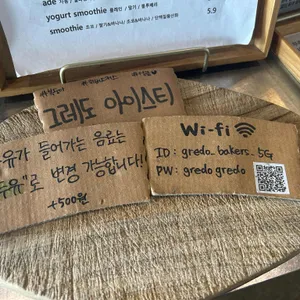 ade
yogurt smoothie 플레인 / 딸기 / 블루베리
smoothie 초코 / 딸기&바나나 / 5.9
그레도 아이스티
유가 들어가는 음료는
두유"로 변경 가능합니다!
+500원
Wi-fi
ID : gredo_bakers_5G
PW : gredo gredo